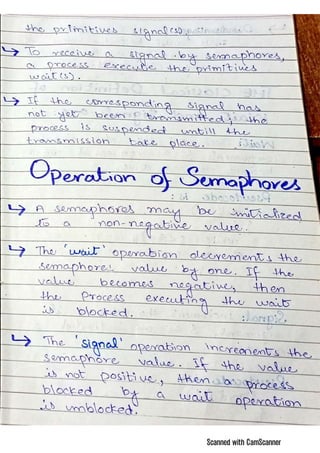 the primitives signal(s).
↳ To receive a signal by semaphores,
a process execute the primitives
wait(s).
↳ If the corresponding signal has
not yet been transmitted, the
process is suspended untill the
transmission take place.
Operation of Semaphores
↳ A semaphores may be initialized
to a non-negative value.
↳ The 'wait' operation decrements the
semaphores value by one. If the
value becomes negative, then
the Process executing the wait
is blocked.
↳ The 'signal' operation increments the
semaphore value. If the value
is not positive, then a process
blocked by a wait operation
is unblocked.
Scanned with CamScanner